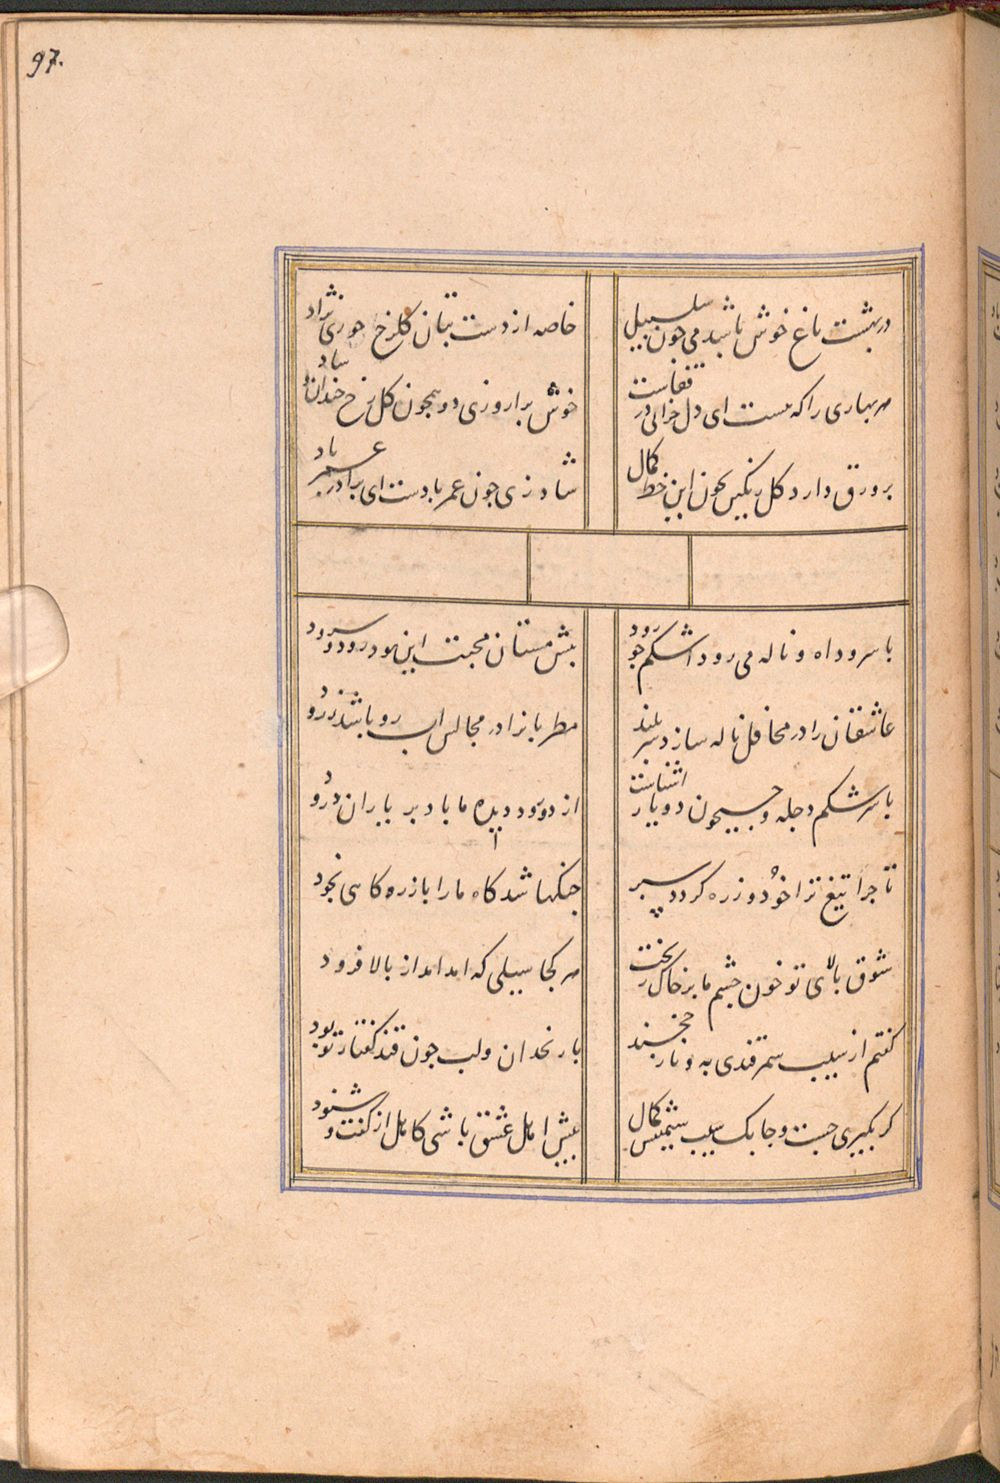 97.
در بهشت باغ خوش باشد می جون سلسبیل خاصه از دست بتان کلرخ حوری نژاد
هر بهاری را که هست ای دل خزانی در قفاست خوش برار وزی دو همجون کل رخ خندان و شاد
بر ورق دارد کل رنکین بخون این خط کمال شاد زی جون عمر بادست ای برادر عمر باد
با سرود اه و ناله می رود اشکم جو رود بیش مستان محبت این بود رود و سرود
عاشقان را در محافل ناله سازد سربلند مطربانرا در مجالس اب رو باشد ز رود
با سرشکم دجله و جیحون دو یار اشناست از دو رود دیده ما باد بر یاران درود
تا جرا تیغ ترا خود و زره کردد سبر جنکها شد کاه ما را با زره کاهی بخود
شوق بالای تو خون جشم ما بر خاک ریخت هر کجا سیلی که امد امد از بالا فرود
کفتم از سیب سمرقندی به و نار خجند با زنخدان و لب جون قند کفتار تو بود
کر بکیری جست و جابک سیب سیمینش کمال بیش اهل عشق باشی کامل از کفت و شنود